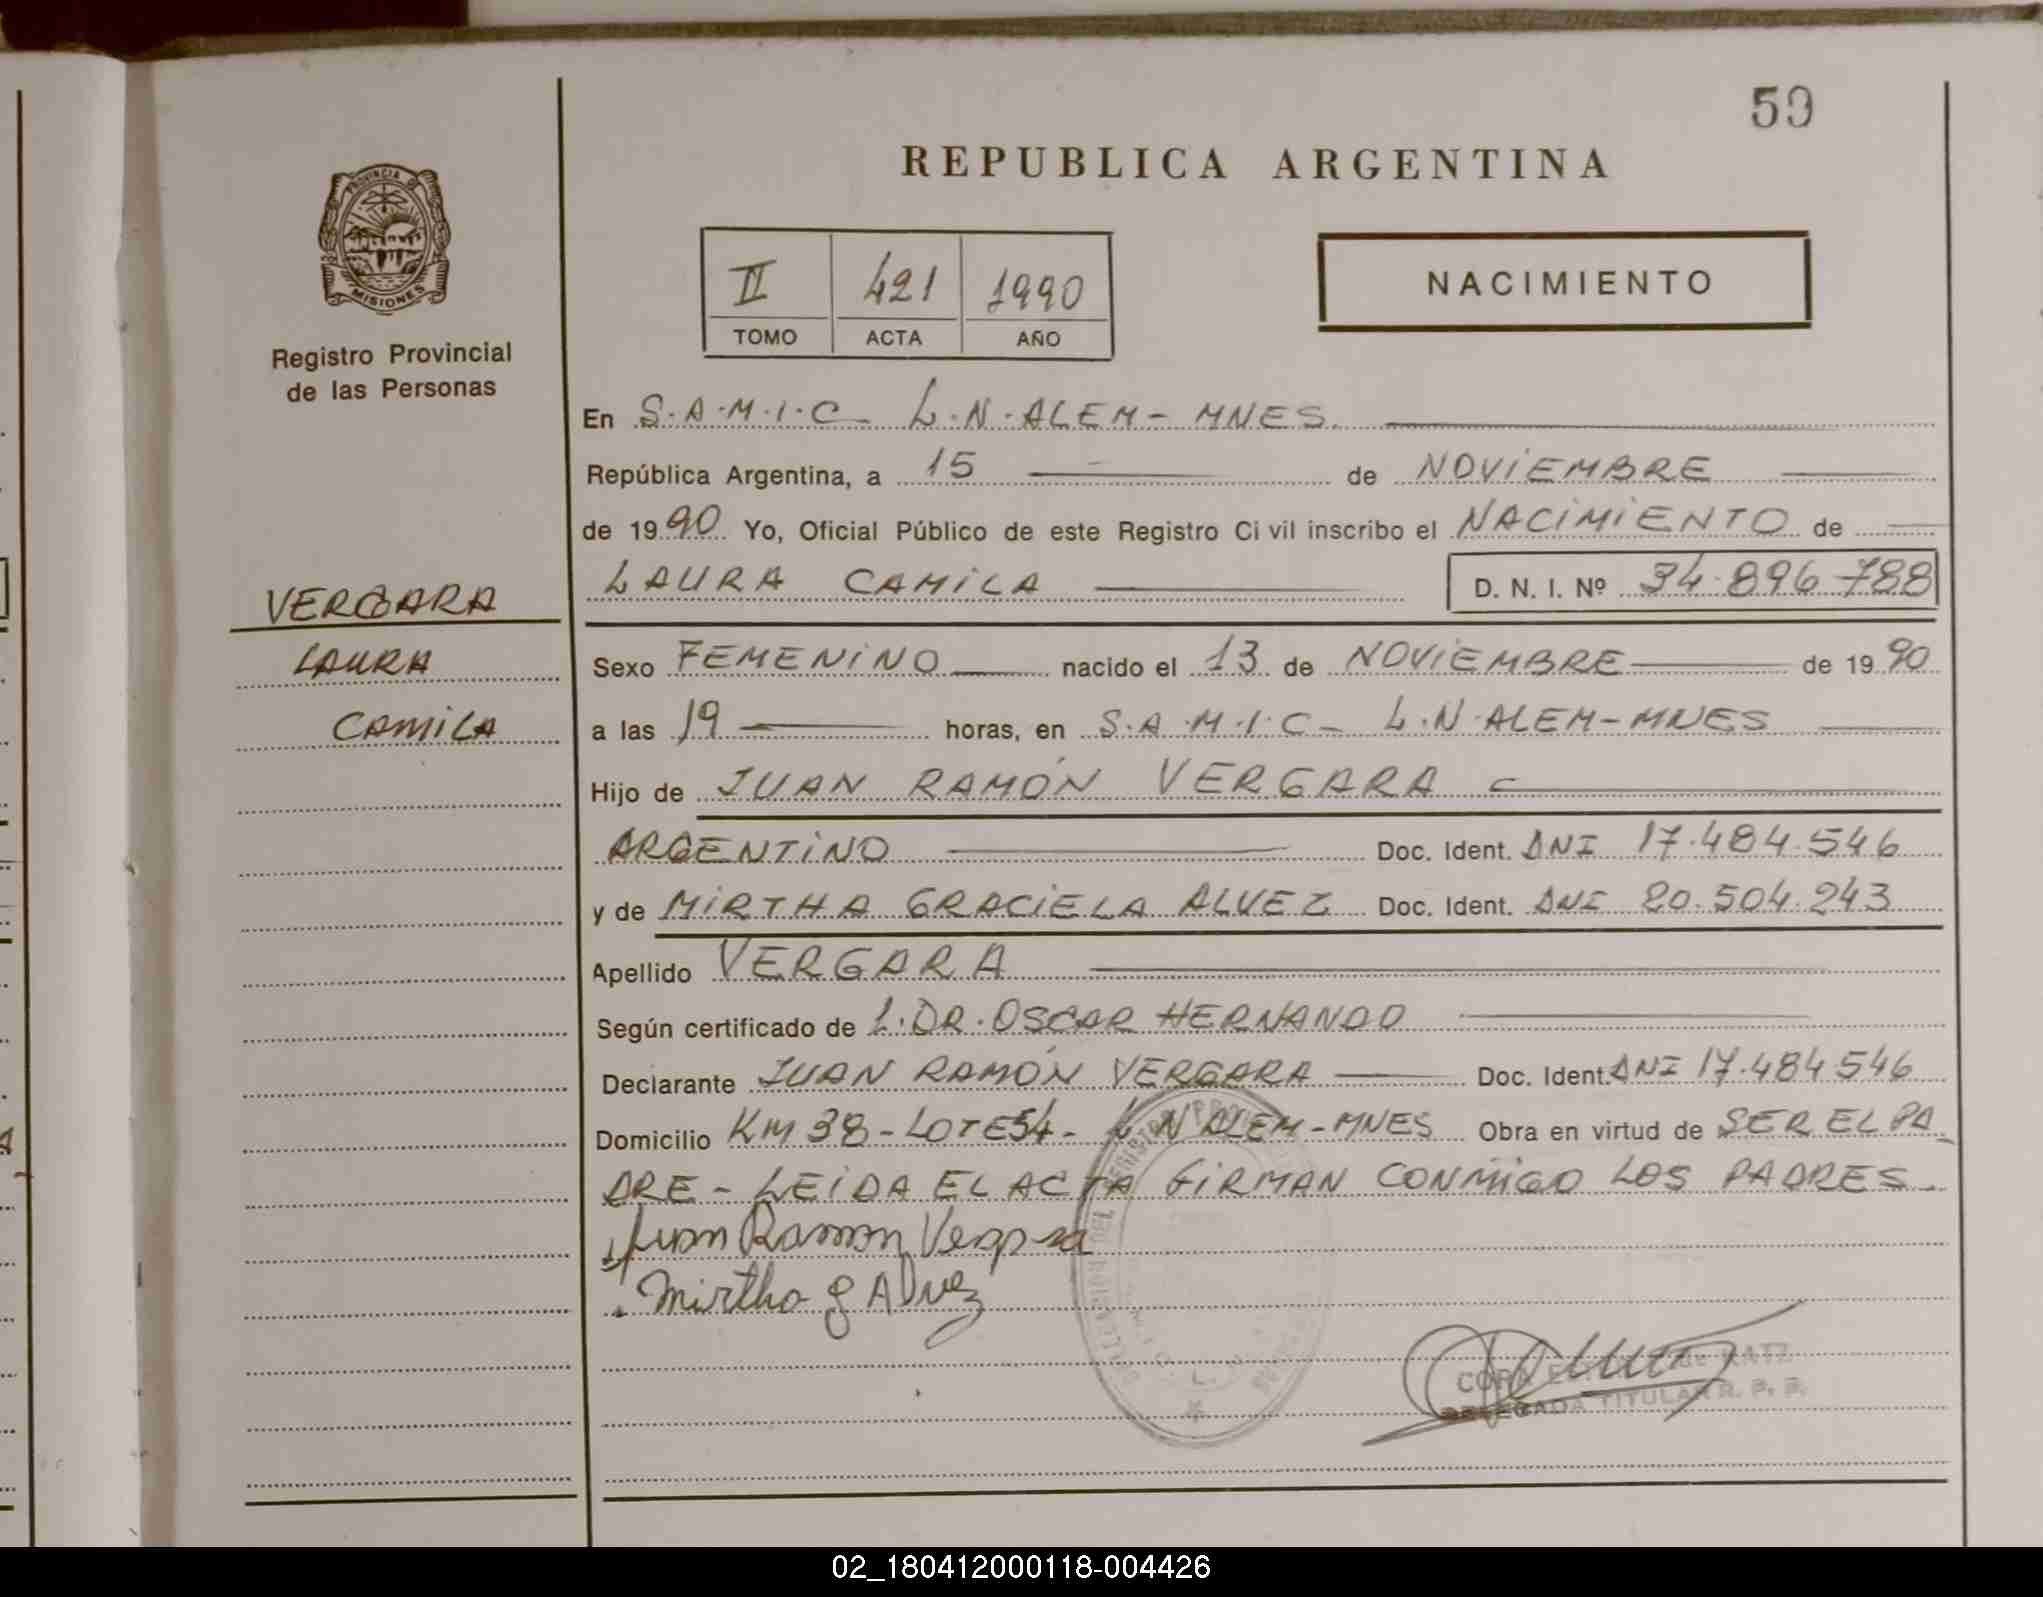 59
REPUBLICA ARGENTINA
PROVINCIA DE
MISIONES
Registro Provincial
de las Personas
II 421 1990
TOMO ACTA AÑO
NACIMIENTO
En S.A.M.I.C - L.N. ALEM - MNES.
República Argentina, a 15 de NOVIEMBRE
de 1990 Yo, Oficial Público de este Registro Civil inscribo el NACIMIENTO de
LAURA CAMILA D. N. I. Nº 34.896.788
VERGARA
LAURA
CAMILA
Sexo FEMENINO nacido el 13 de NOVIEMBRE de 1990
a las 19 horas, en S.A.M.I.C - L.N. ALEM - MNES
Hijo de JUAN RAMÓN VERGARA
ARGENTINO Doc. Ident. DNI 17.484.546
y de MIRTHA GRACIELA ALVEZ Doc. Ident. DNI 20.504.243
Apellido VERGARA
Según certificado de L. DR. OSCAR HERNANDO
Declarante JUAN RAMÓN VERGARA Doc. Ident. DNI 17.484546
Domicilio KM 38 - LOTE 54 - L N ALEM - MNES Obra en virtud de SER EL PA
DRE - LEIDA EL ACTA FIRMAN CONMIGO LOS PADRES.
Juan Ramon Vergara
Mirtha g Alvez
CORA de KATZ
DELEGADA TITULAR R. P. P.
02_180412000118-004426